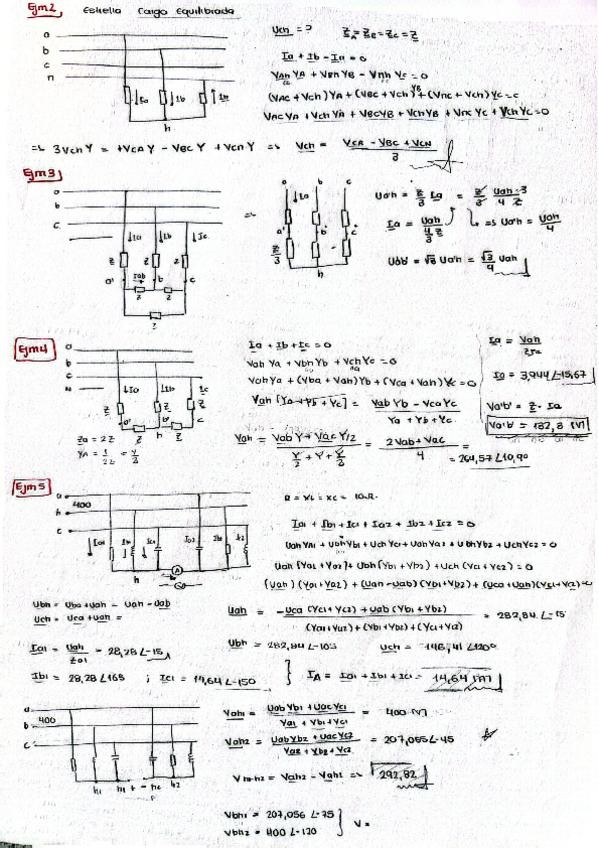 Ejm2 Estrella Carga Equilibrada
Uch = ? ZA = ZB = ZC = Z
a
b
c
n
Ia Ib In
h
Ia + Ib - Ia = 0
Vah YA + VBh YB - Vnh Yc = 0
(VAC + Vch) YA + (VBC + Vch) YB + (Vnc + Vch) Yc = 0
VAC YA + Vch YA + VBC YB + Vch YB + Vnc Yc + Vch Yc = 0
=> 3Vch Y = +VCA Y - VBC Y + VCN Y => Vch = VCA - VBC + VCN / 3
Ejm3
a
b
c
Ia Ib Ic
Z Z Z
a' Iab b' c
Z Z
Z
=>
a b c
Ia
a' b' c
Z/3
h
Ua'h = Z/3 Ia = Z/3 Uah·3 / 4 Z
Ia = Uah / 4/3 Z => Ua'h = Uah / 4
Uab' = √3 Ua'h = √3/4 Uah
Ejm4
a
b
c
N
Ia Ib Ic
Z Z Z
a' b'
h
Za = 2Z
YA = 1/2Z = Y/2
Ia + Ib + Ic = 0
Vah Ya + Vbh Yb + Vch Yc = 0
Vah Ya + (Vba + Vah) Yb + (Vca + Vah) Yc = 0
Vah [Ya + Yb + Yc] = Vab Yb - Vca Yc / Ya + Yb + Yc
Vah = Vab Y + Vac Y/2 / Y/2 + Y + Y/2 = 2Vab + Vac / 4 =
= 264,57 ∠10,9°
Ia = Vah / 2Za
Ia = 3,944 ∠-15,67
Va'b' = Z · Ia
Va'b' = 132,8 [V]
Ejm5
a
400
b
c
Ia1 Ib1 Ic1 Ia2 Ib2 Ic2
h A
R = XL = XC = 10Ω
Ia1 + Ib1 + Ic1 + Ia2 + Ib2 + Ic2 = 0
Uah Ya1 + Ubh Yb1 + Uch Yc1 + Uah Ya2 + Ubh Yb2 + Uch Yc2 = 0
Uah (Ya1 + Ya2) + Ubh (Yb1 + Yb2) + Uch (Yc1 + Yc2) = 0
(Uah) (Ya1 + Ya2) + (Uah - Uab) (Yb1 + Yb2) + (Uca + Uah) (Yc1 + Yc2) = 0
Ubh = Uba + Uah = Uah - Uab
Uch = Uca + Uah =
Uah = -Uca (Yc1 + Yc2) + Uab (Yb1 + Yb2) / (Ya1 + Ya2) + (Yb1 + Yb2) + (Yc1 + Yc2) = 282,84 ∠-15
Ia1 = Uah / Za1 = 28,28 ∠-15
Ubh = 282,84 ∠-105 Uch = 146,41 ∠120°
Ib1 = 28,28 ∠165 ; Ic1 = 14,64 ∠-150 } IA = Ia1 + Ib1 + Ic1 = 14,64 [A]
a
400
b
c
h1 h1 + - h2 h2
Vah1 = Uab Yb1 + Uac Yc1 / Ya1 + Yb1 + Yc1 = 400 [V]
Vah2 = Uab Yb2 + Uac Yc2 / Ya2 + Yb2 + Yc2 = 207,055 ∠-45
Vh1-h2 = Vah2 - Vah1 => 292,82
Vbh1 = 207,056 ∠-75
Vbh2 = 400 ∠-120 } V =